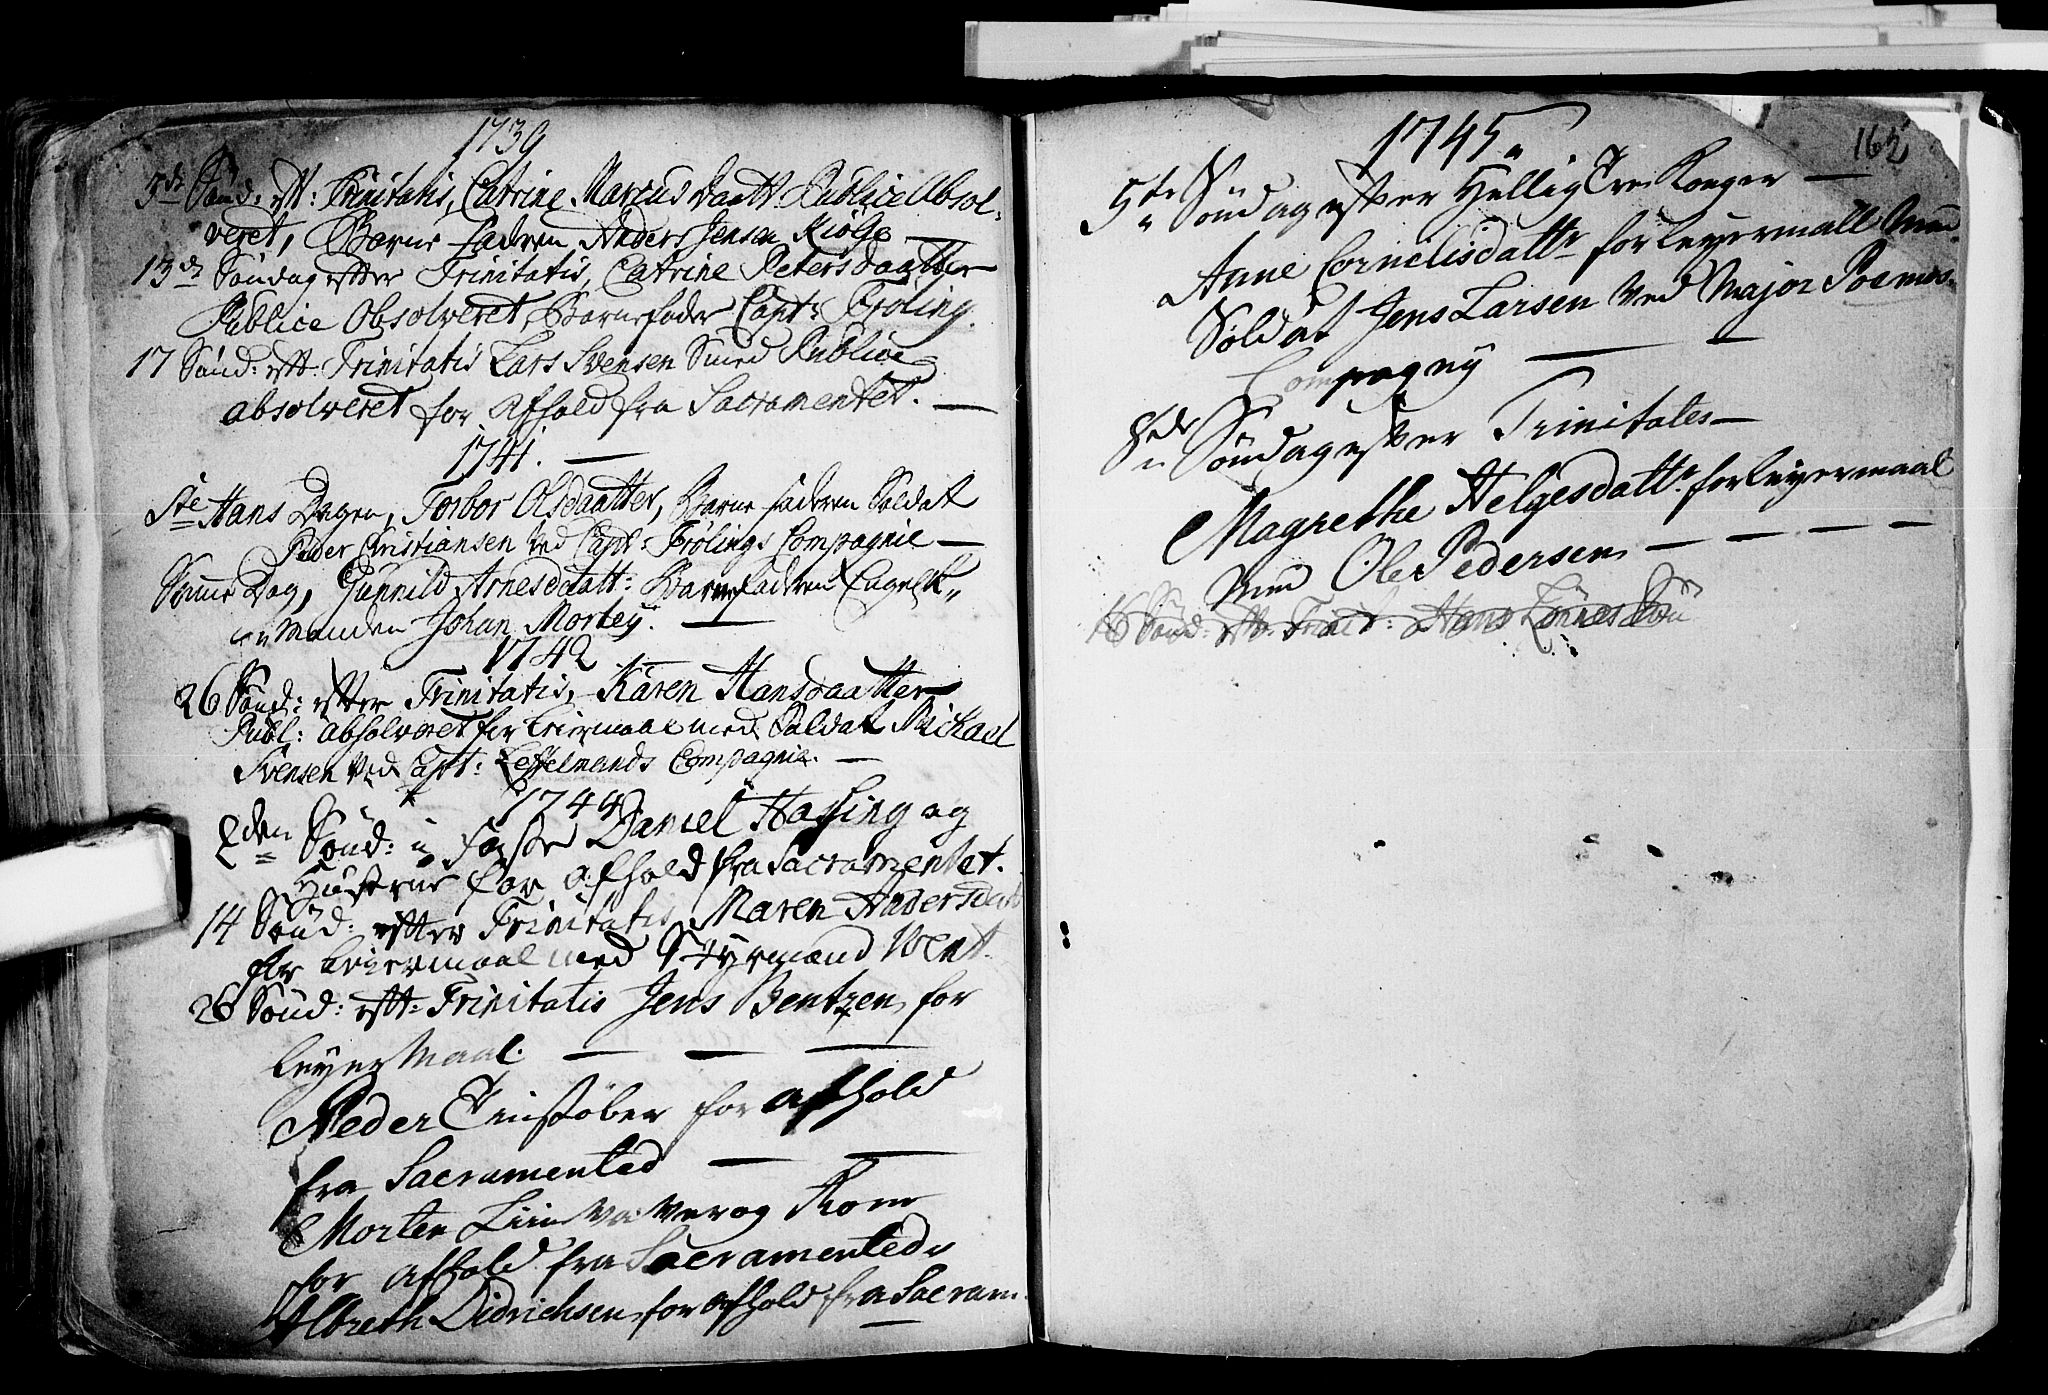 1739
3de Sönd: eft: Trinitatis, Catrine Marcusdaatt: Publice Absol-
veret, Barne faderen Anders Jensen
13de Söndag efter Trinitatis, Catrine Petersdaatter
Publice Absolveret, Barnefader Capt: Fröling.
17 Sönd: eft: Trinitatis Lars Svensen Smed Publice
absolveret for Afhold fra Sacramentet.
1741.
Ste Hans Dagen, Torbor Olsdaatter, Barne faderen Soldat
Peder Christiansen ved Capt: Frölings Compagnie
Samme Dag, Gunnild Arnesdaatt: Barnefaderen Engelsk
Manden Johan Morley.
1742
26 Sönd: efter Trinitatis, Karen Hansdaatter
Publ: absolveret for Leiermaal med Soldat Michael
Svensen ved Capt: Leffelmands Compagnie.
1744
2den Sönd: i Faste Daniel Hassing og
Hustrue for afhold fra Sacramentet.
14 Sönd: efter Trinitatis Maren Andersdat
for Leiermaal med Styrmand Went.
26 Sönd: eft: Trinitatis Jens Bentzen for
Leyer Maal.
Peder Tinstöber for afhold
fra Sacramented
Morten Liin Væver og Kone
for afhold fra Sacramented
Albreth Didrichsen for afhold fra Sacram.
162
1745
5te Söndag efter Hellig Tre Konger
Anne Cornelisdattr for leyermall med
Soldat Jens Larsen ved Major
Compagny
8de Söndag efter Trinitates
Magrethe Helgesdattr for leyermaal
med Ole Pedersen
16 Sönd: eft: Trinit: Hans